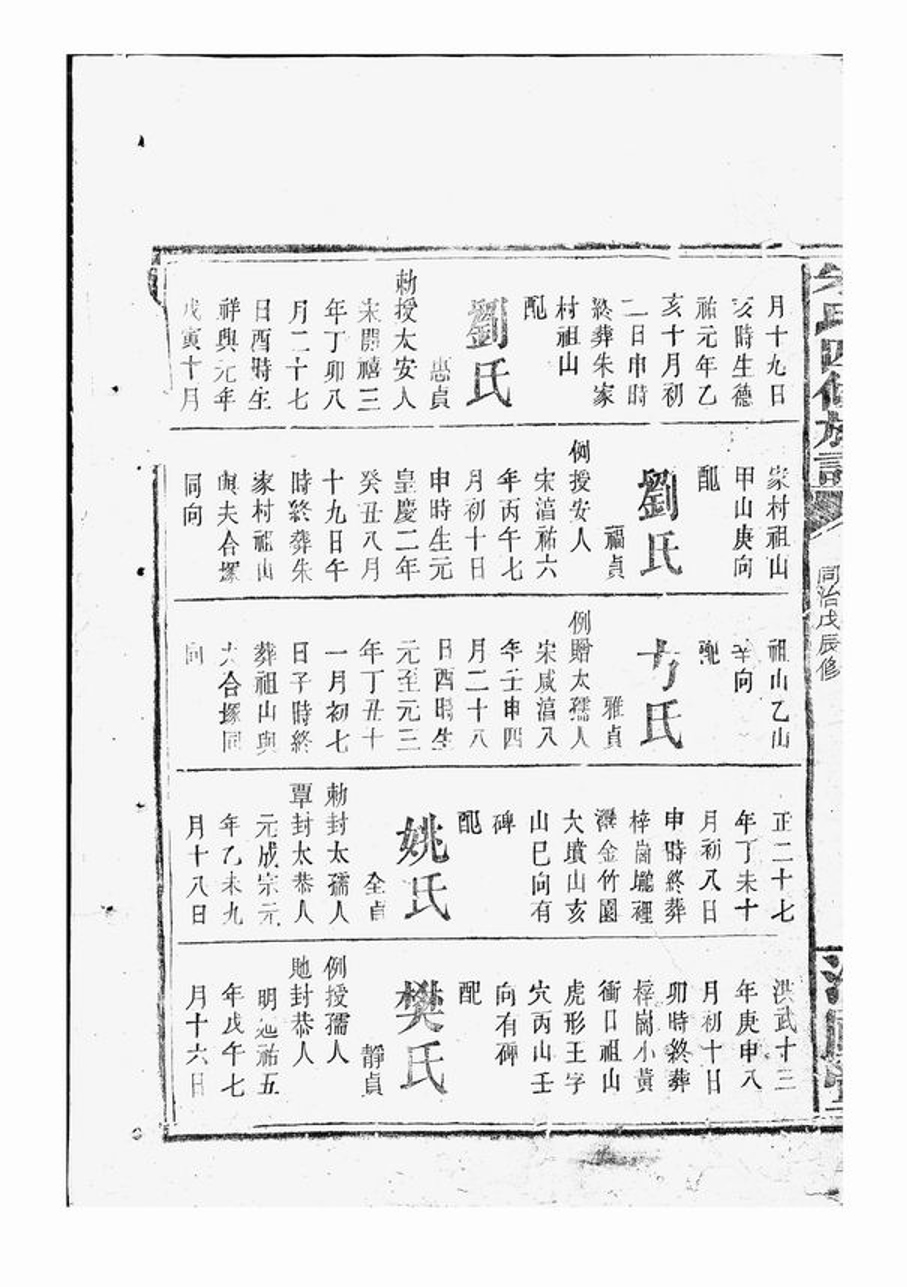 氏四修族譜
同治戊辰修
月十九日
亥時生德
祐元年乙
亥十月初
二日申時
終葬朱家
村祖山
配
劉氏
惠貞
勅授太安人
宋開禧三
年丁卯八
月二十七
日酉時生
祥興元年
戊寅十月
家村祖山
甲山庚向
配
劉氏
福貞
例授安人
宋湻祐六
年丙午七
月初十日
申時生元
皇慶二年
癸丑八月
十九日午
時終葬朱
家村祖山
與夫合塚
同向
祖山乙山
辛向
配
氏
雅貞
例贈太孺人
宋咸湻八
年壬申四
月二十八
日酉時生
元至元三
年丁丑十
一月初七
日子時終
葬祖山與
夫合塚同
向
正二十七
年丁未十
月初八日
申時終葬
梓崗壠裡
灣金竹園
大墳山亥
山巳向有
碑
配
姚氏
全貞
勅封太孺人
覃封太恭人
元成宗元
年乙未九
月十八日
洪武十三
年庚申八
月初十日
卯時終葬
梓崗小黃
衝口祖山
虎形王字
穴丙山壬
向有碑
配
樊氏
靜貞
例授孺人
貤封恭人
明延祐五
年戊午七
月十六日